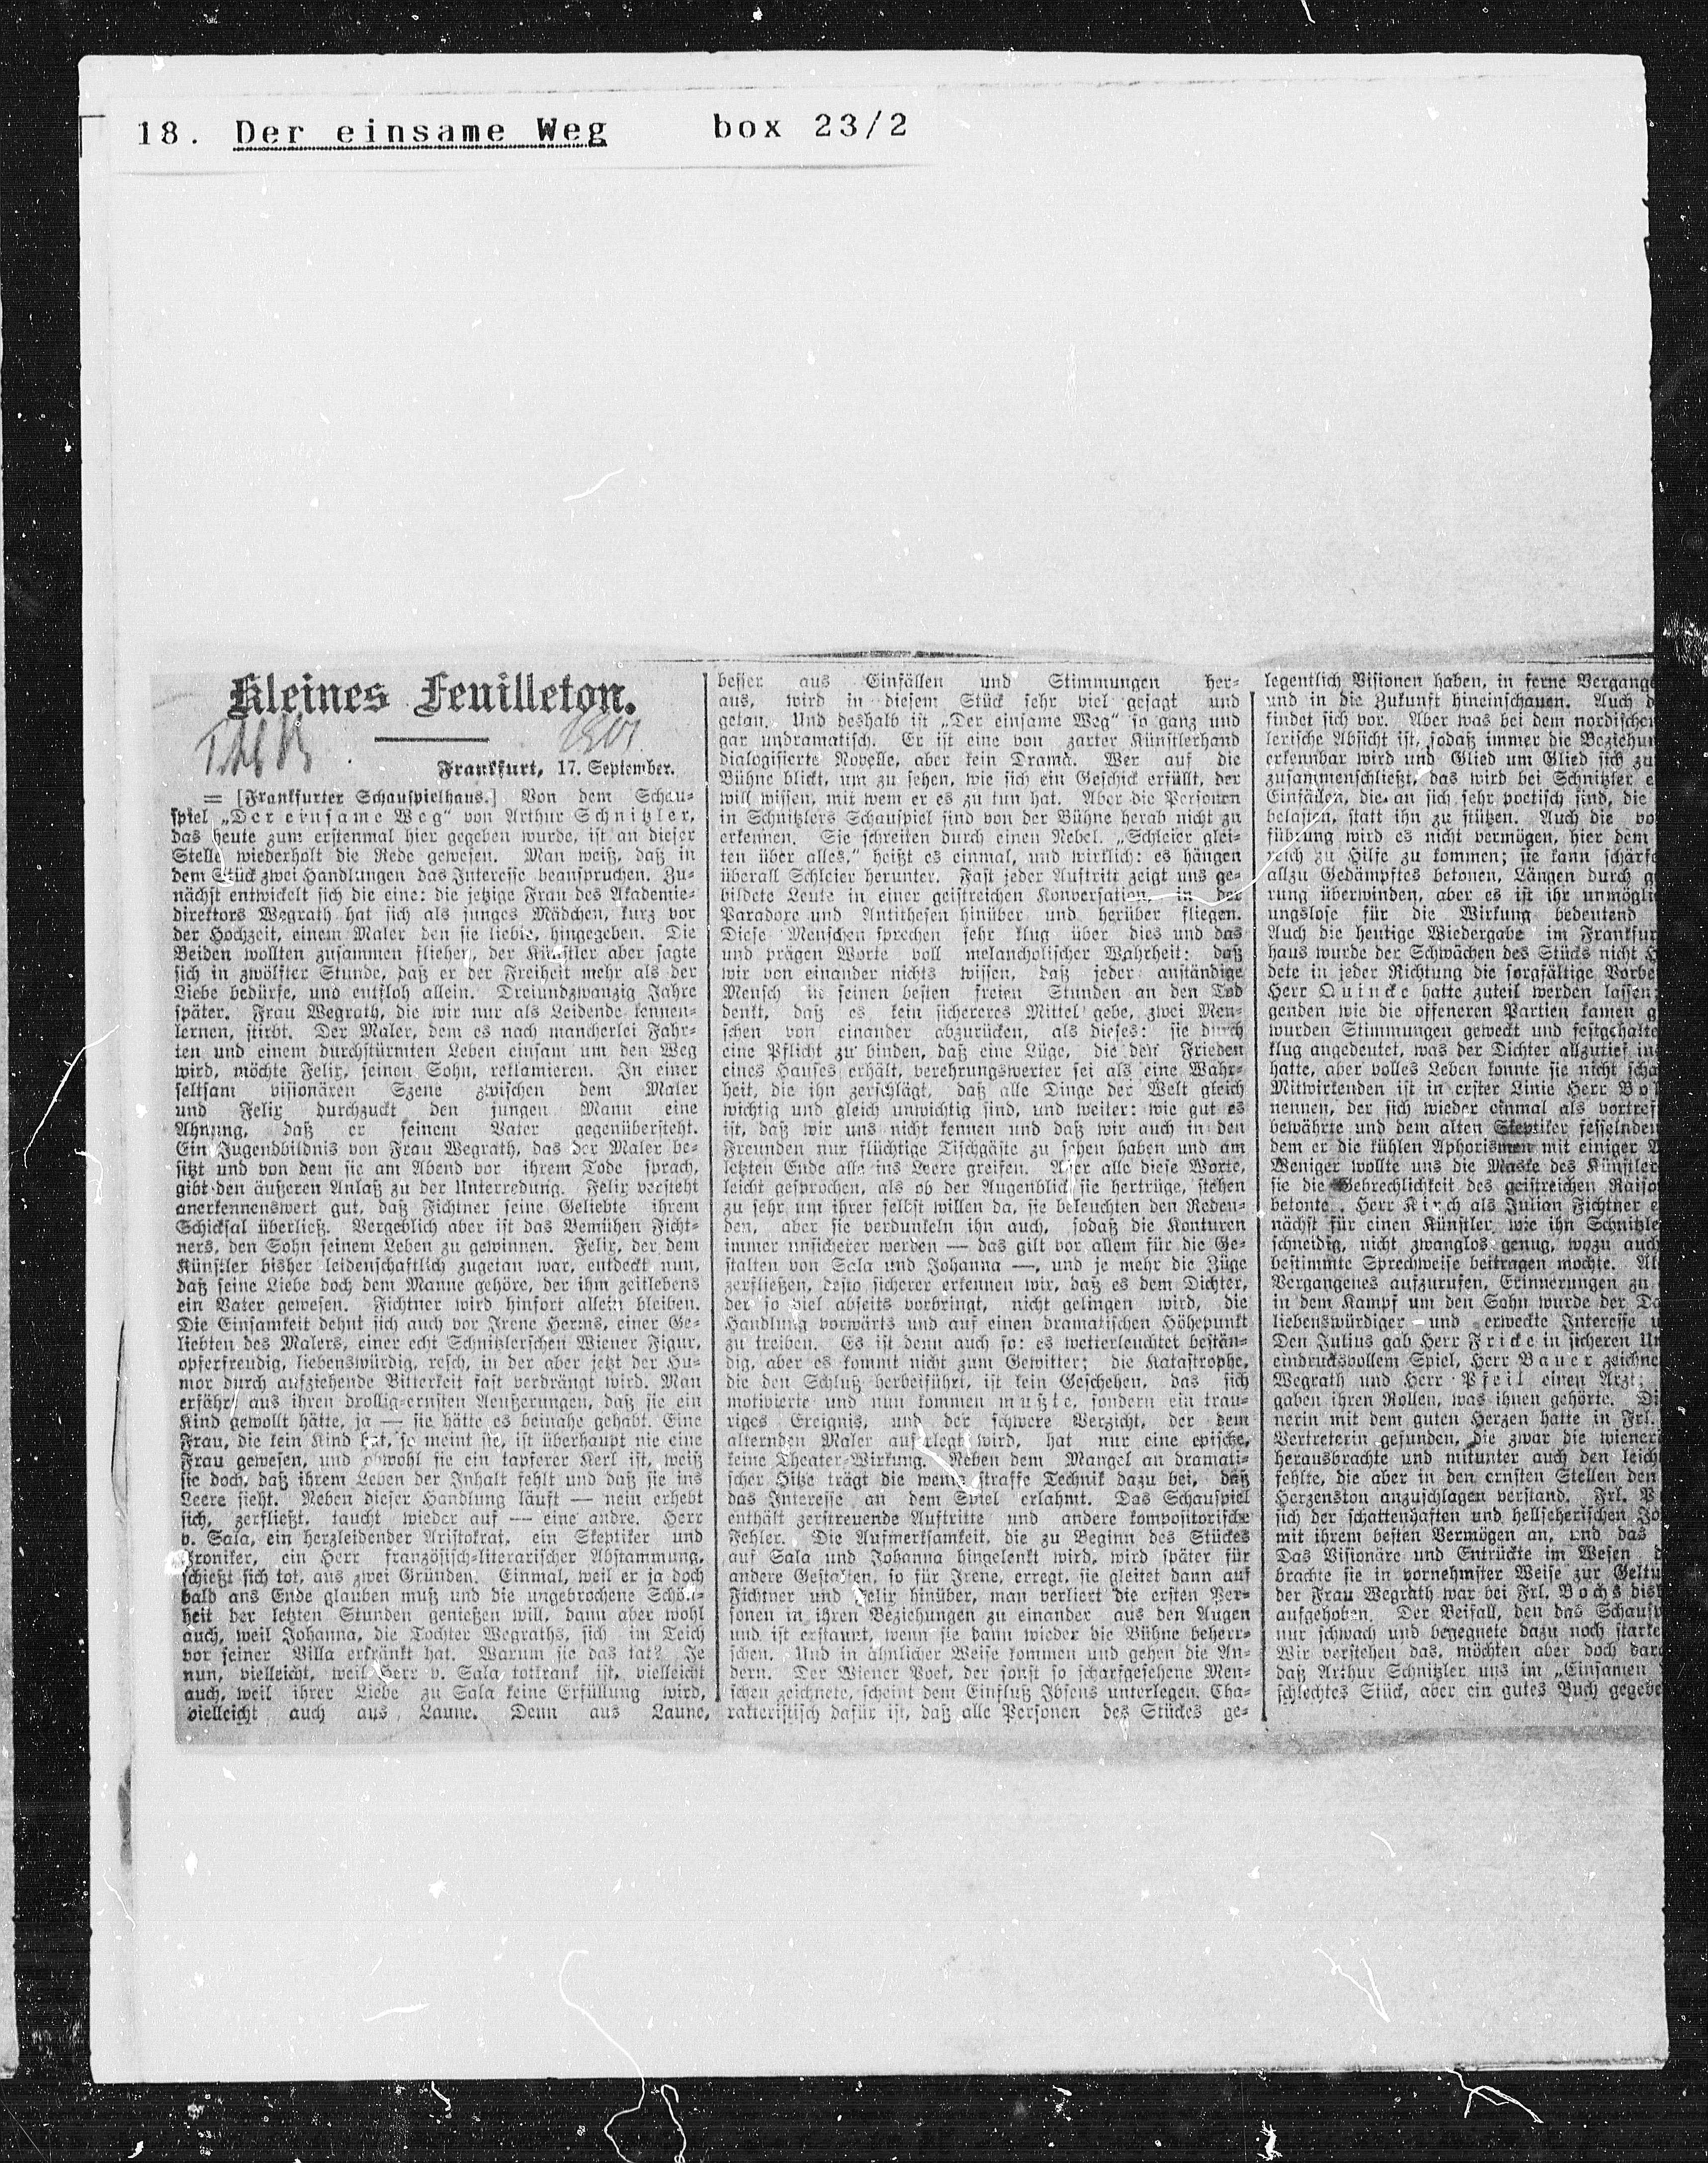 18. Der einsame Weg box 23/2
Kleines Feuilleton.
Frankfurt, 17. September.
= [Frankfurter Schauspielhaus.] Von dem Schau-
spiel „Der einsame Weg“ von Arthur Schnitzler,
das heute zum erstenmal hier gegeben wurde, ist an dieser
Stelle wiederholt die Rede gewesen. Man weiß, daß in
dem Stück zwei Handlungen das Interesse beanspruchen. Zu-
nächst entwickelt sich die eine: die jetzige Frau des Akademie-
direktors Wegrath hat sich als junges Mädchen, kurz vor
der Hochzeit, einem Maler den sie liebte, hingegeben. Die
Beiden wollten zusammen fliehen, der Künstler aber sagte
sich in zwölfter Stunde, daß er der Freiheit mehr als der
Liebe bedürfe, und entfloh allein. Dreiundzwanzig Jahre
später. Frau Wegrath, die wir nur als Leidende kennen-
lernen, stirbt. Der Maler, dem es nach mancherlei Fahr-
ten und einem durchstürmten Leben einsam um den Weg
wird, möchte Felix, seinen Sohn, reklamieren. In einer
seltsam visionären Szene zwischen dem Maler
und Felix durchzuckt den jungen Mann eine
Ahnung, daß er seinem Vater gegenübersteht.
Ein Jugendbildnis von Frau Wegrath, das der Maler be-
sitzt und von dem sie am Abend vor ihrem Tode sprach,
gibt den äußeren Anlaß zu der Unterredung. Felix versteht
anerkennenswert gut, daß Fichtner seine Geliebte ihrem
Schicksal überließ. Vergeblich aber ist das Bemühen Ficht-
ners, den Sohn seinem Leben zu gewinnen. Felix, der dem
Künstler bisher leidenschaftlich zugetan war, entdeckt nun,
daß seine Liebe doch dem Manne gehöre, der ihm zeitlebens
ein Vater gewesen. Fichtner wird hinfort allein bleiben.
Die Einsamkeit dehnt sich auch vor Irene Herms, einer Ge-
liebten des Malers, einer echt Schnitzlerschen Wiener Figur,
opferfreudig, liebenswürdig, resch, in der aber jetzt der Hu-
mor durch aufziehende Bitterkeit fast verdrängt wird. Man
erfährt aus ihren drollig-ernsten Aeußerungen, daß sie ein
Kind gewollt hätte, ja — sie hätte es beinahe gehabt. Eine
Frau, die kein Kind hat, so meint sie, ist überhaupt nie eine
Frau gewesen, und obwohl sie ein tapferer Kerl ist, weiß
sie doch, daß ihrem Leben der Inhalt fehlt und daß sie ins
Leere sieht. Neben dieser Handlung läuft — nein erhebt
sich, zerfließt, taucht wieder auf — eine andre. Herr
v. Sala, ein herzleidender Aristokrat, ein Skeptiker und
Ironiker, ein Herr französisch-literarischer Abstammung,
schießt sich tot, aus zwei Gründen. Einmal, weil er ja doch
bald ans Ende glauben muß und die ungebrochene Schön-
heit der letzten Stunden genießen will, dann aber wohl
auch, weil Johanna, die Tochter Wegraths, sich im Teich
vor seiner Villa ertränkt hat. Warum sie das tat? Je
nun, vielleicht, weil Herr v. Sala totkrank ist, vielleicht
auch, weil ihrer Liebe zu Sala keine Erfüllung wird,
vielleicht auch aus Laune. Denn aus Laune,
besser aus Einfällen und Stimmungen her-
aus, wird in diesem Stück sehr viel gesagt und
getan. Und deshalb ist „Der einsame Weg“ so ganz und
gar undramatisch. Er ist eine von zarter Künstlerhand
dialogisierte Novelle, aber kein Drama. Wer auf die
Bühne blickt, um zu sehen, wie sich ein Geschick erfüllt, der
will wissen, mit wem er es zu tun hat. Aber die Personen
in Schnitzlers Schauspiel sind von der Bühne herab nicht zu
erkennen. Sie schreiten durch einen Nebel. „Schleier glei-
ten über alles,“ heißt es einmal, und wirklich: es hängen
überall Schleier herunter. Fast jeder Auftritt zeigt uns ge-
bildete Leute in einer geistreichen Konversation, in der
Paradoxe und Antithesen hinüber und herüber fliegen.
Diese Menschen sprechen sehr klug über dies und das
und prägen Worte voll melancholischer Wahrheit: daß
wir von einander nichts wissen, daß jeder anständige
Mensch in seinen besten freien Stunden an den Tod
denkt, daß es kein sichereres Mittel gebe, zwei Men-
schen von einander abzurücken, als dieses: sie durch
eine Pflicht zu binden, daß eine Lüge, die den Frieden
eines Hauses erhält, verehrungswerter sei als eine Wahr-
heit, die ihn zerschlägt, daß alle Dinge der Welt gleich
wichtig und gleich unwichtig sind, und weiter: wie gut es
ist, daß wir uns nicht kennen und daß wir auch in den
Freunden nur flüchtige Tischgäste zu sehen haben und am
letzten Ende alle ins Leere greifen. Aber alle diese Worte,
leicht gesprochen, als ob der Augenblick sie hertrüge, stehen
zu sehr um ihrer selbst willen da, sie beleuchten den Reden-
den, aber sie verdunkeln ihn auch, sodaß die Konturen
immer unsicherer werden — das gilt vor allem für die Ge-
stalten von Sala und Johanna —, und je mehr die Züge
zerfließen, desto sicherer erkennen wir, daß es dem Dichter,
der so viel abseits vorbringt, nicht gelingen wird, die
Handlung vorwärts und auf einen dramatischen Höhepunkt
zu treiben. Es ist denn auch so: es wetterleuchtet bestän-
dig, aber es kommt nicht zum Gewitter; die Katastrophe,
die den Schluß herbeiführt, ist kein Geschehen, das sich
motivierte und nun kommen mußte, sondern ein trau-
riges Ereignis, und der schwere Verzicht, der dem
alternden Maler auferlegt wird, hat nur eine epische,
keine Theater-Wirkung. Neben dem Mangel an dramati-
scher Hitze trägt die wenig straffe Technik dazu bei, daß
das Interesse an dem Spiel erlahmt. Das Schauspiel
enthält zerstreuende Auftritte und andere kompositorische
Fehler. Die Aufmerksamkeit, die zu Beginn des Stückes
auf Sala und Johanna hingelenkt wird, wird später für
andere Gestalten, so für Irene, erregt, sie gleitet dann auf
Fichtner und Felix hinüber, man verliert die ersten Per-
sonen in ihren Beziehungen zu einander aus den Augen
und ist erstaunt, wenn sie dann wieder die Bühne beherr-
schen. Und in ähnlicher Weise kommen und gehen die An-
dern. Der Wiener Poet, der sonst so scharfgesehene Men-
schen zeichnete, scheint dem Einfluß Ibsens unterlegen. Cha-
rakteristisch dafür ist, daß alle Personen des Stückes ge-
legentlich Visionen haben, in ferne Vergang
und in die Zukunft hineinschauen. Auch
findet sich vor. Aber was bei dem nordischen
lerische Absicht ist, sodaß immer die Beziehun
erkennbar wird und Glied um Glied sich zu
zusammenschließt, das wird bei Schnitzler
Einfällen, die an sich sehr poetisch sind, die
belasten, statt ihn zu stützen. Auch die vo
führung wird es nicht vermögen, hier dem
reich zu Hilfe zu kommen; sie kann schärfe
allzu Gedämpftes betonen, Längen durch
rung überwinden, aber es ist ihr unmögli
ungslose für die Wirkung bedeutend
Auch die heutige Wiedergabe im Frankfur
haus wurde der Schwächen des Stücks nicht
dete in jeder Richtung die sorgfältige Vorbe
Herr Quincke hatte zuteil werden lassen;
genden wie die offeneren Partien kamen
wurden Stimmungen geweckt und festgehalte
klug angedeutet, was der Dichter allzutief in
hatte, aber volles Leben konnte sie nicht scha
Mitwirkenden ist in erster Linie Herr Bo
nennen, der sich wieder einmal als vortref
bewährte und dem alten Skeptiker fesselnden
dem er die kühlen Aphorismen mit einiger
Weniger wollte uns die Maske des Künstler
sie die Gebrechlichkeit des geistreichen Raiso
betonte. Herr Kirch als Julian Fichtner
nächst für einen Künstler, wie ihn Schnitzle
schneidig, nicht zwanglos genug, wozu auch
bestimmte Sprechweise beitragen mochte.
Vergangenes aufzurufen, Erinnerungen zu
in dem Kampf um den Sohn wurde der
liebenswürdiger und erweckte Interesse
Den Julius gab Herr Fricke in sicheren
eindrucksvollem Spiel, Herr Bauer zeichne
Wegrath und Herr Pfeil einen Arzt;
gaben ihren Rollen, was ihnen gehörte.
nerin mit dem guten Herzen hatte in Frl.
Vertreterin gefunden, die zwar die wiener
herausbrachte und mitunter auch den leich
fehlte, die aber in den ernsten Stellen den
Herzenston anzuschlagen verstand. Frl.
sich der schattenhaften und hellseherischen Jo
mit ihrem besten Vermögen an, und das
Das Visionäre und Entrückte im Wesen
brachte sie in vornehmster Weise zur Geltu
der Frau Wegrath war bei Frl. Bochs
aufgehoben. Der Beifall, den das Schausp
nur schwach und begegnete dazu noch starke
Wir verstehen das, möchten aber doch dara
daß Arthur Schnitzler uns im „Einsamen
schlechtes Stück, aber ein gutes Buch gegebe